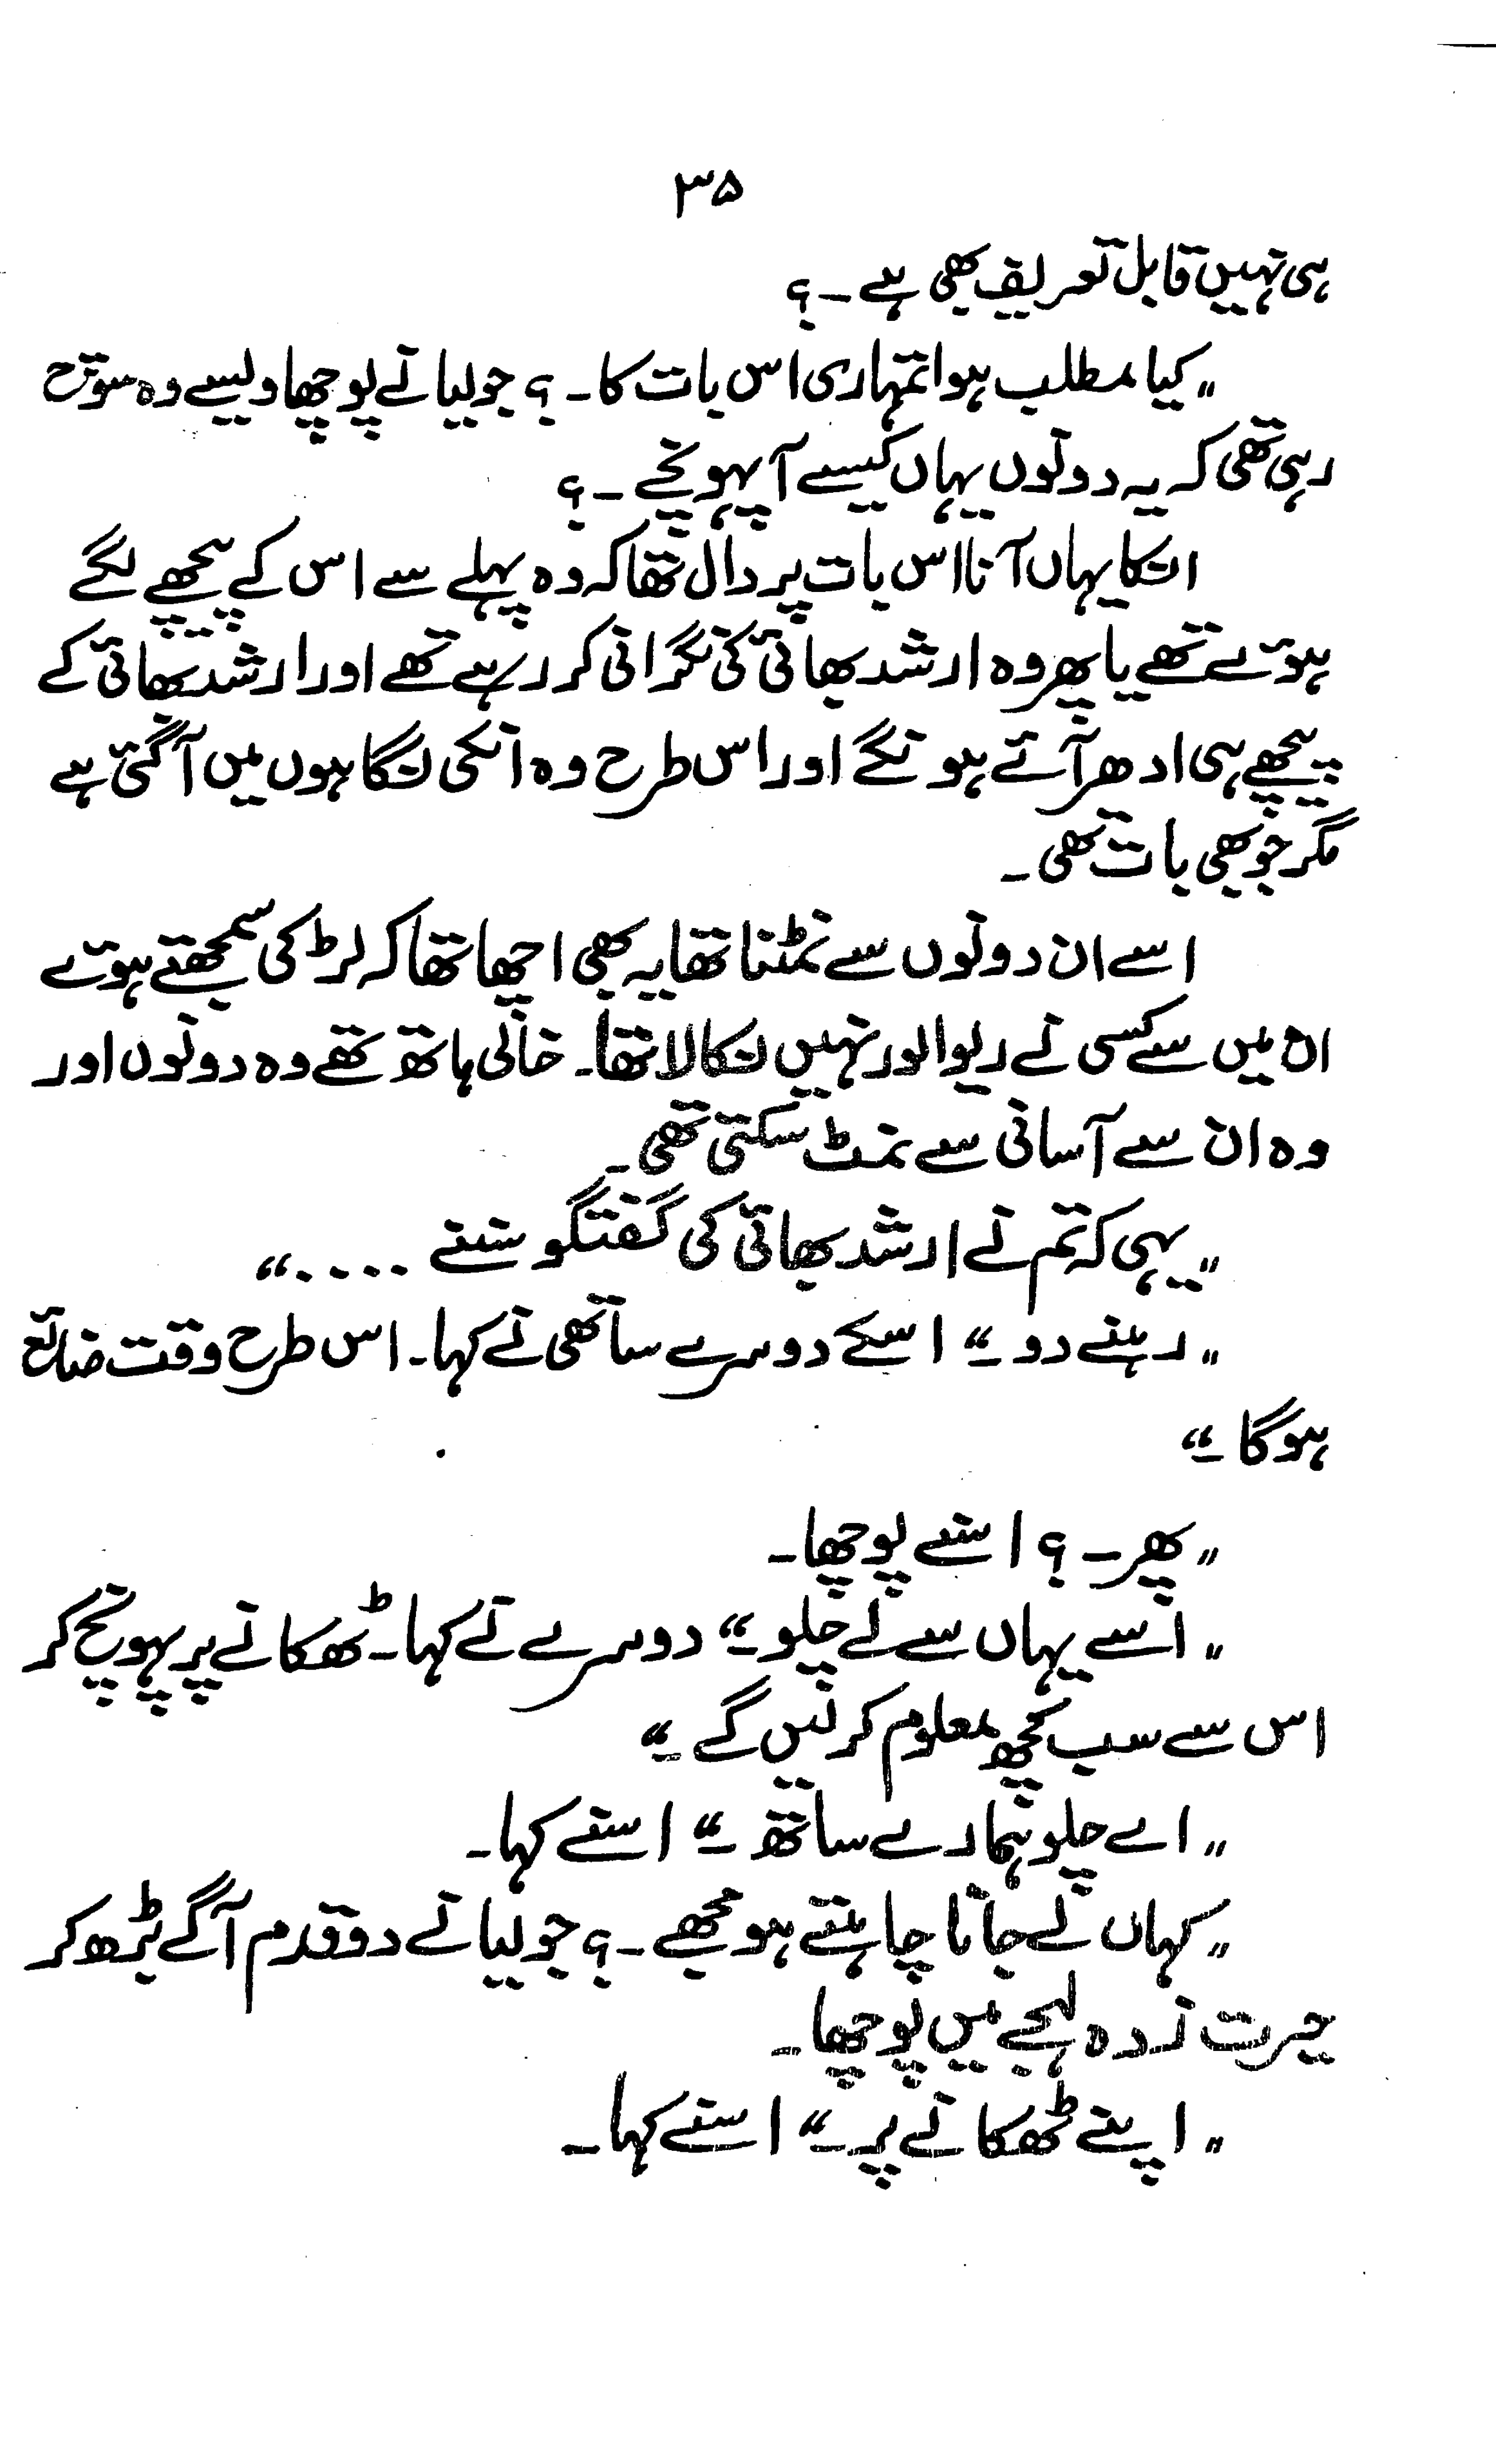 ۳۵
ہی نہیں قابل تعریف بھی ہے ۔ ؟
"کیا مطلب ہوا تمہاری اس بات کا ۔ ؟ جولیا نے پوچھا ویسے وہ سوچ
رہی تھی کہ یہ دونوں یہاں کیسے آ پہونچے ۔ ؟
انکا یہاں آنا اس بات پر دال تھا کہ وہ پہلے سے اس کے پیچھے لگے
ہوئے تھے یا پھر وہ ارشد بھائی کی نگرانی کر رہے تھے اور ارشد بھائی کے
پیچھے ہی ادھر آئے ہونگے اور اس طرح وہ انکی نگاہوں میں آ گئی ہے
مگر جو بھی بات تھی ۔
اسے ان دونوں سے نمٹنا تھا یہ بھی اچھا تھا کہ لڑکی سمجھتے ہوئے
ان میں سے کسی نے ریوالور نہیں نکالا تھا ۔ خالی ہاتھ تھے وہ دونوں اور
وہ ان سے آسانی سے نمٹ سکتی تھی ۔
"یہی کہ تم نے ارشد بھائی کی گفتگو سننے ....“
"رہنے دو ۔“ اسکے دوسرے ساتھی نے کہا ۔ اس طرح وقت ضائع
ہوگا ۔“
"پھر ۔ ؟ اسنے پوچھا ۔
"اسے یہاں سے لے چلو ۔“ دوسرے نے کہا ۔ ٹھکانے پر پہونچ کر
اس سے سب کچھ معلوم کر لیں گے ۔“
"اے چلو ہمارے ساتھ ۔“ اسنے کہا ۔
"کہاں لے جانا چاہتے ہو مجھے ۔ ؟ جولیا نے دو قدم آگے بڑھ کر
حیرت زدہ لہجے میں پوچھا ۔
"اپنے ٹھکانے پر ۔“ اسنے کہا ۔